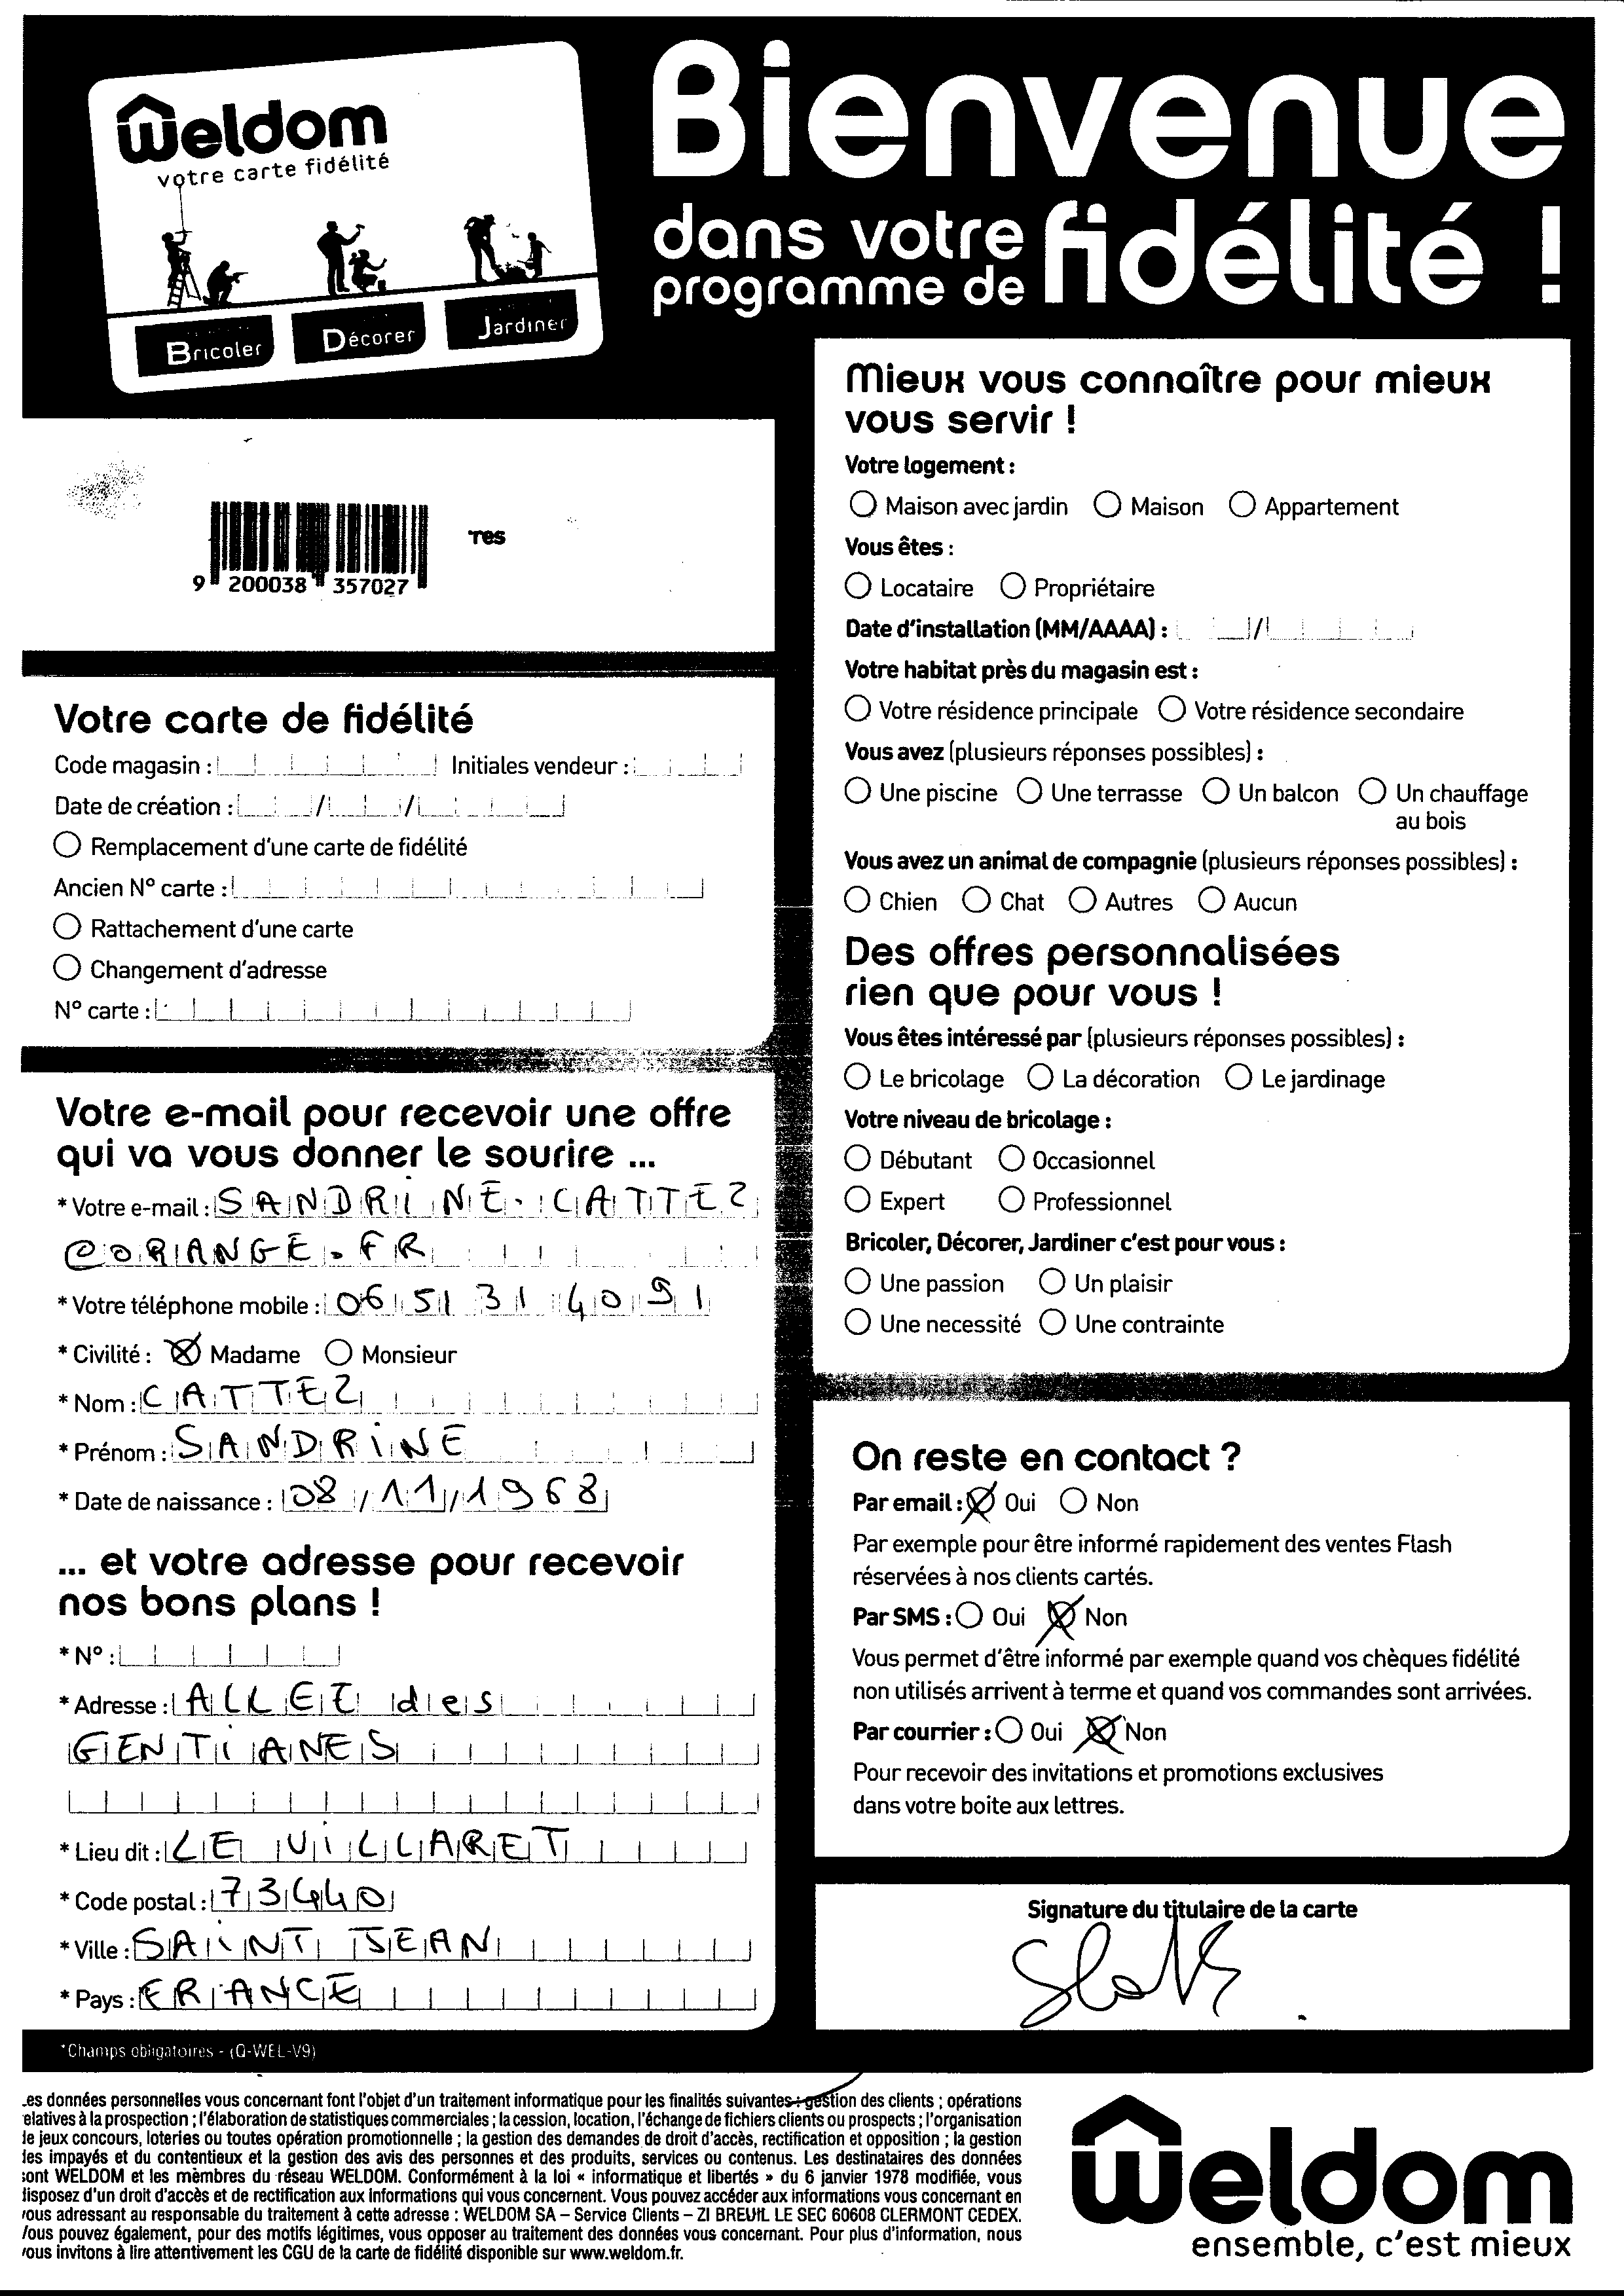 Weldom
votre carte fidélité
Bricoler Décorer Jardiner
Bienvenue
dans votre
programme de fidélité !
res
9 200038 357027
Votre carte de fidélité
Code magasin : Initiales vendeur :
Date de création : / /
Remplacement d'une carte de fidélité
Ancien N° carte :
Rattachement d'une carte
Changement d'adresse
N° carte :
Votre e-mail pour recevoir une offre
qui va vous donner le sourire ...
* Votre e-mail : SANDRINE.CATTEZ
@ORANGE.FR
* Votre téléphone mobile : 06 51 31 40 91
* Civilité : Madame Monsieur
* Nom : CATTEZ
* Prénom : SANDRINE
* Date de naissance : 08/11/1968
... et votre adresse pour recevoir
nos bons plans !
* N° :
* Adresse : ALLEE des
GENTIANES
* Lieu dit : LE VILLARET
* Code postal : 73440
* Ville : SAINT JEAN
* Pays : FRANCE
*Champs obligatoires - (Q-WEL-V9)
Mieux vous connaître pour mieux
vous servir !
Votre logement :
Maison avec jardin Maison Appartement
Vous êtes :
Locataire Propriétaire
Date d'installation (MM/AAAA) : /
Votre habitat près du magasin est :
Votre résidence principale Votre résidence secondaire
Vous avez (plusieurs réponses possibles) :
Une piscine Une terrasse Un balcon Un chauffage
au bois
Vous avez un animal de compagnie (plusieurs réponses possibles) :
Chien Chat Autres Aucun
Des offres personnalisées
rien que pour vous !
Vous êtes intéressé par (plusieurs réponses possibles) :
Le bricolage La décoration Le jardinage
Votre niveau de bricolage :
Débutant Occasionnel
Expert Professionnel
Bricoler, Décorer, Jardiner c'est pour vous :
Une passion Un plaisir
Une necessité Une contrainte
On reste en contact ?
Par email : Oui Non
Par exemple pour être informé rapidement des ventes Flash
réservées à nos clients cartés.
Par SMS : Oui Non
Vous permet d'être informé par exemple quand vos chèques fidélité
non utilisés arrivent à terme et quand vos commandes sont arrivées.
Par courrier : Oui Non
Pour recevoir des invitations et promotions exclusives
dans votre boite aux lettres.
Signature du titulaire de la carte
es données personnelles vous concernant font l'objet d'un traitement informatique pour les finalités suivantes : gestion des clients ; opérations
elatives à la prospection ; l'élaboration de statistiques commerciales ; la cession, location, l'échange de fichiers clients ou prospects ; l'organisation
de jeux concours, loteries ou toutes opération promotionnelle ; la gestion des demandes de droit d'accès, rectification et opposition ; la gestion
des impayés et du contentieux et la gestion des avis des personnes et des produits, services ou contenus. Les destinataires des données
sont WELDOM et les membres du réseau WELDOM. Conformément à la loi « informatique et libertés » du 6 janvier 1978 modifiée, vous
disposez d'un droit d'accès et de rectification aux informations qui vous concernent. Vous pouvez accéder aux informations vous concernant en
vous adressant au responsable du traitement à cette adresse : WELDOM SA – Service Clients – ZI BREUIL LE SEC 60608 CLERMONT CEDEX.
Vous pouvez également, pour des motifs légitimes, vous opposer au traitement des données vous concernant. Pour plus d'information, nous
vous invitons à lire attentivement les CGU de la carte de fidélité disponible sur www.weldom.fr.
Weldom
ensemble, c'est mieux